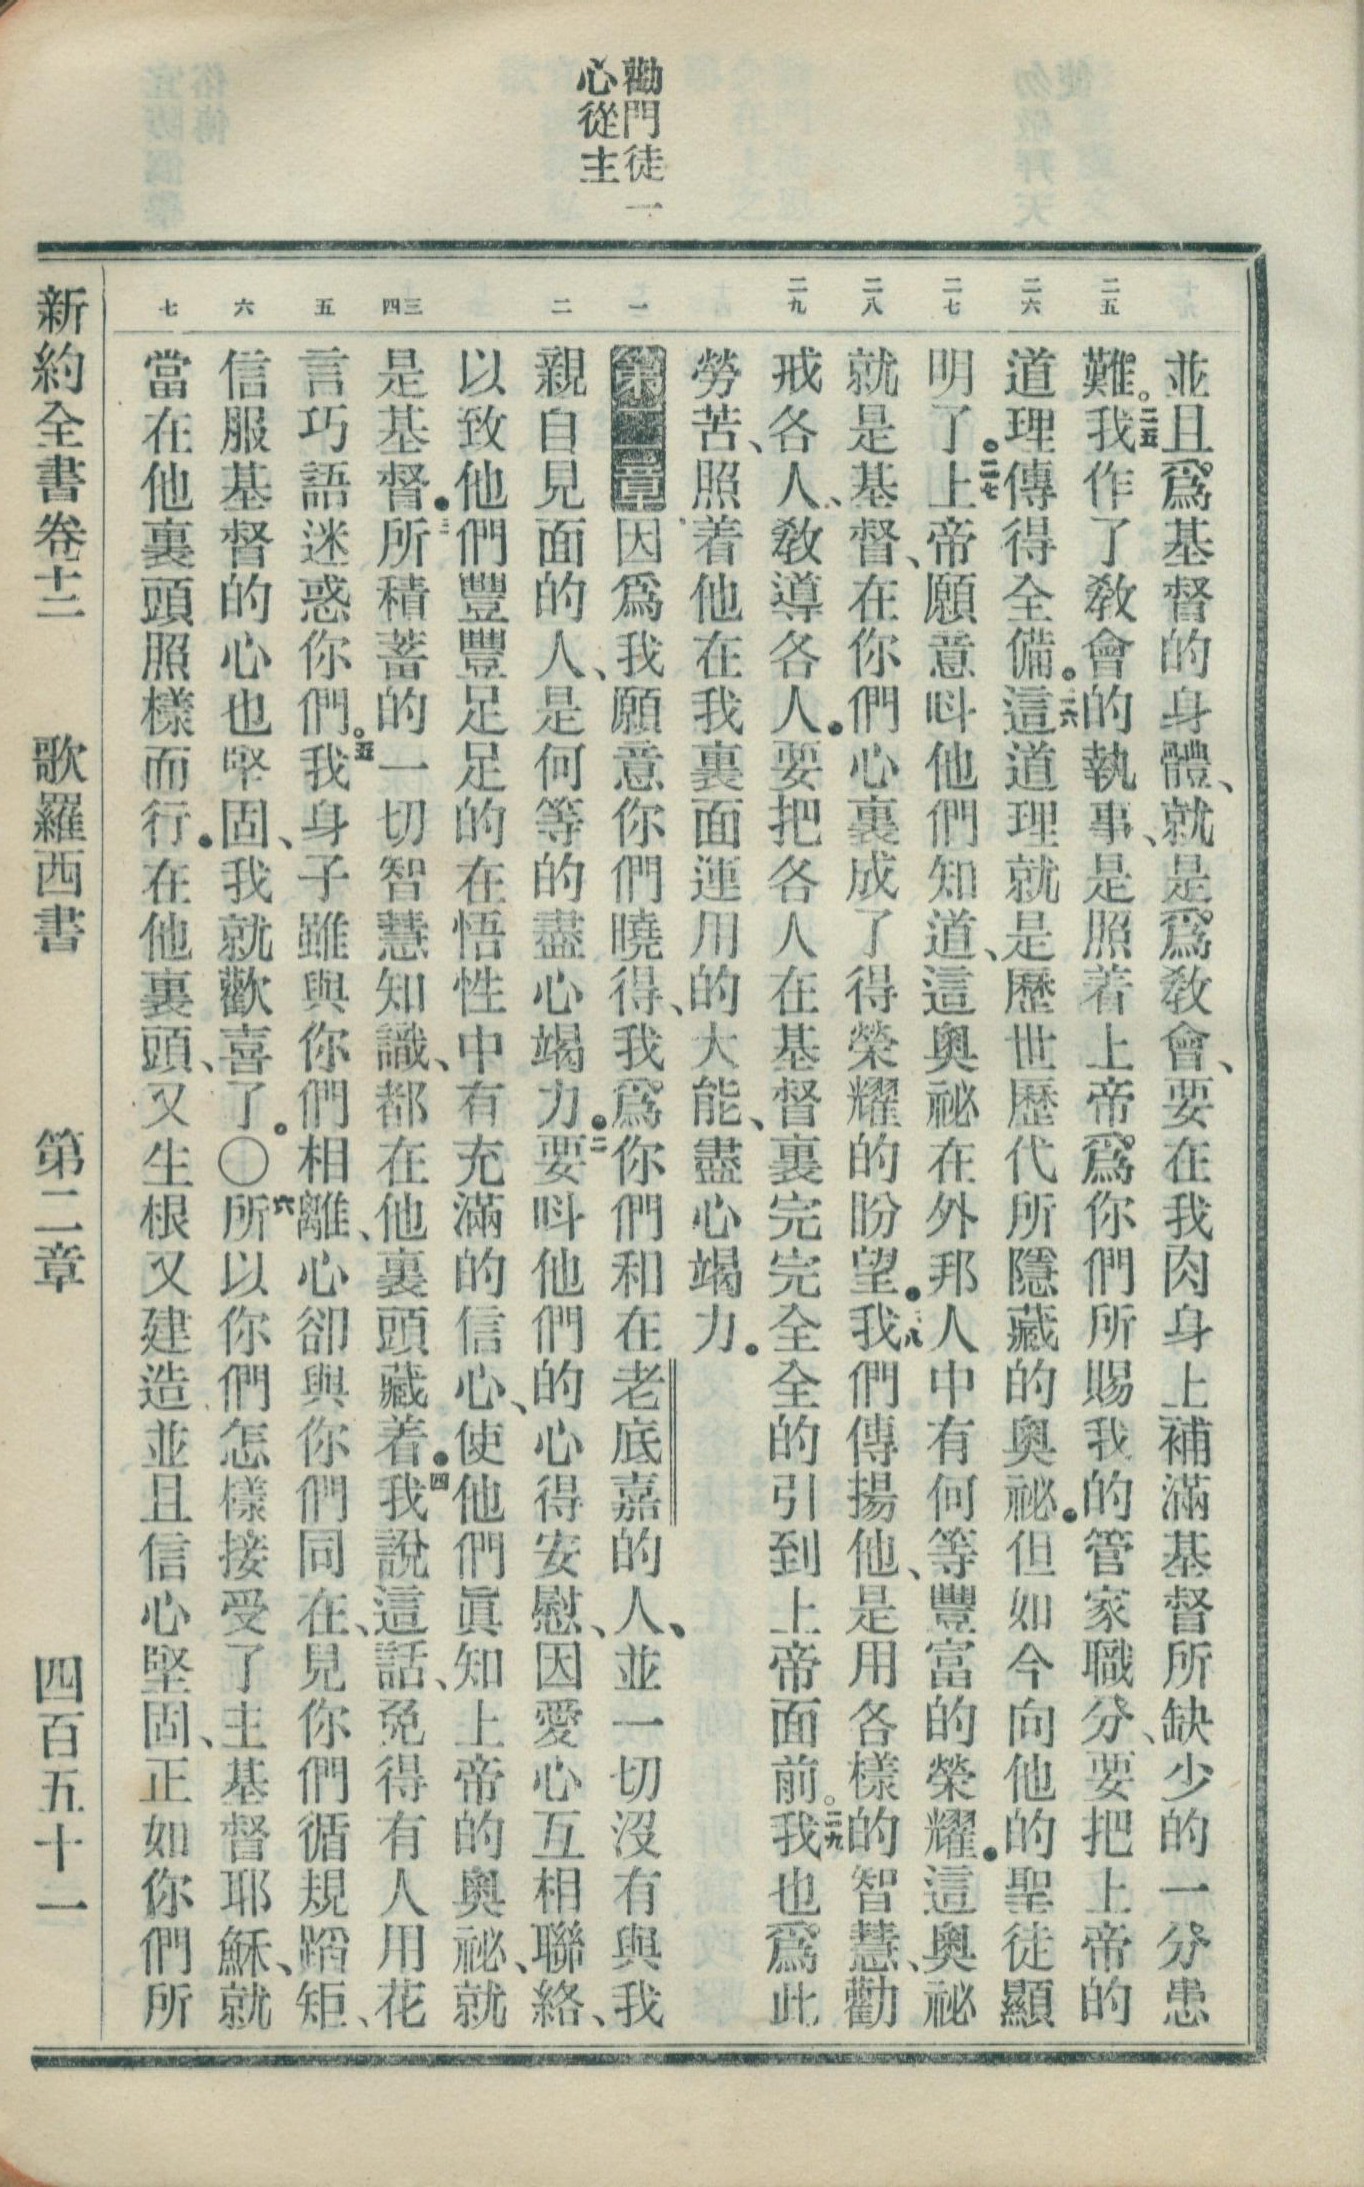 勸門徒一
心從主
二五
二六
二七
二八
二九
一
二
三四
五
六
七
並且爲基督的身體、就是爲敎會、要在我肉身上補滿基督所缺少的一分患
難。二五我作了敎會的執事、是照着上帝爲你們所賜我的管家職分、要把上帝的
道理傳得全備。二六這道理就是歷世歷代所隱藏的奧祕．但如今向他的聖徒顯
明了。二七上帝願意呌他們知道、這奧祕在外邦人中有何等豐富的榮耀．這奧祕
就是基督、在你們心裏成了得榮耀的盼望．二八我們傳揚他、是用各樣的智慧、勸
戒各人、敎導各人．要把各人在基督裏完完全全的引到上帝面前。二九我也爲此
勞苦、照着他在我裏面運用的大能、盡心竭力．
第二章因爲我願意你們曉得、我爲你們和在老底嘉的人、並一切沒有與我
親自見面的人、是何等的盡心竭力．二要呌他們的心得安慰、因愛心互相聯絡、
以致他們豐豐足足的在悟性中有充滿的信心、使他們眞知上帝的奧祕、就
是基督．三所積蓄的一切智慧知識、都在他裏頭藏着．四我說這話、免得有人用花
言巧語迷惑你們。五我身子雖與你們相離、心卻與你們同在、見你們循規蹈矩、
信服基督的心也堅固、我就歡喜了。〇六所以你們怎樣接受了主基督耶穌、就
當在他裏頭照樣而行．在他裏頭、又生根又建造並且信心堅固、正如你們所
新約全書卷十二　歌羅西書　第二章　四百五十一